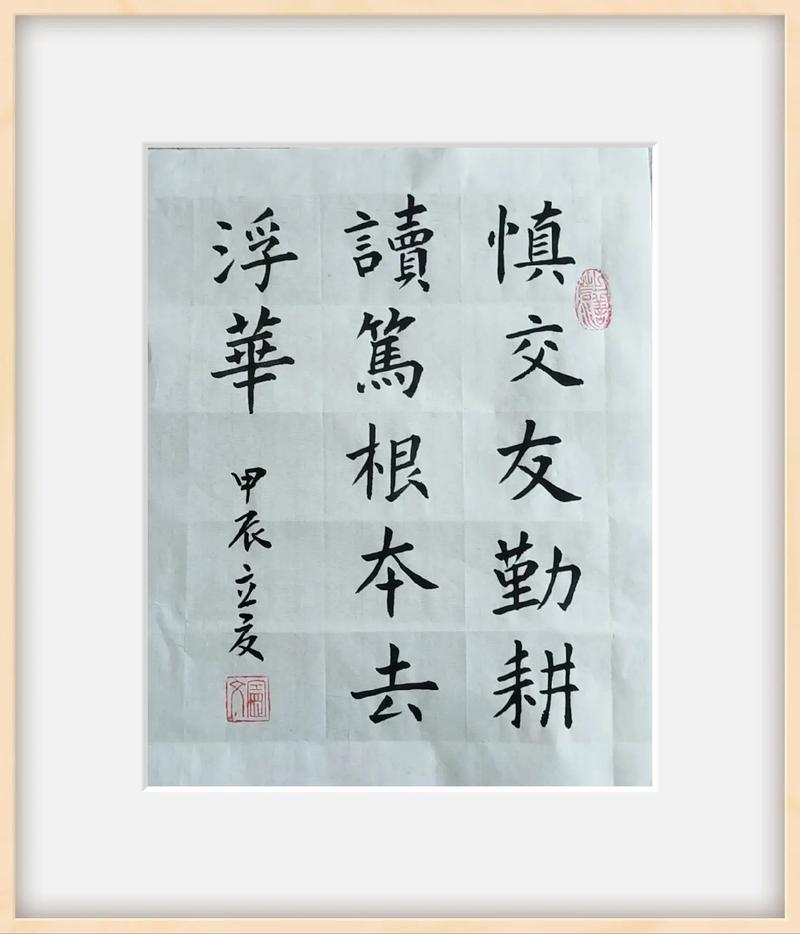 慎交友勤耕
讀篤根本去
浮華
甲辰立夏